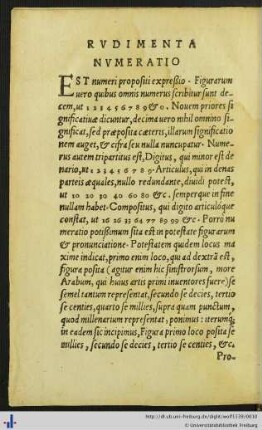 RVDIMENTA
NVMERATIO
EST numeri propositi expressio. Figurarum
uero quibus omnis numerus scribitur sunt de-
cem, ut 1 2 3 4 5 6 7 8 9 & 0. Nouem priores si
gnificatiuæ dicuntur, decima uero nihil omnino si-
gnificat, sed præposita cæteris, illarum significatio
nem auget, & cifra seu nulla nuncupatur. Nume-
rus autem tripartitus est, Digitus, qui minor est de
nario, ut 1 2 3 4 5 6 7 8 9. Articulus, qui in denas
parteis æquales, nullo redundante, diuidi potest,
ut 10 20 30 40 60 80 &c. semperque in fine
nullam habet. Compositus, qui digito articuloque
constat, ut 16 23 64 77 89 99 &c. Porrò nu
meratio potissimùm sita est in potestate figurarum
& pronunciatione. Potestatem quidem locus ma
xime indicat, primo enim loco, qui ad dextrã est,
figura posita (agitur enim hic sinistrorsum, more
Arabum, qui huius artis primi inuentores fuere) se
semel tantum representat, secundo se decies, tertio
se centies, quarto se millies, supra quam punctum,
quod millenarium representat, ponimus: iterumq́;
in eadem sic incipimus, Figura primo loco posita se
millies, secundo se decies, tertio se centies, &c.
Pro-
http://dl.ub.uni-freiburg.de/diglit/
© Universitätsbibliothek Freiburg